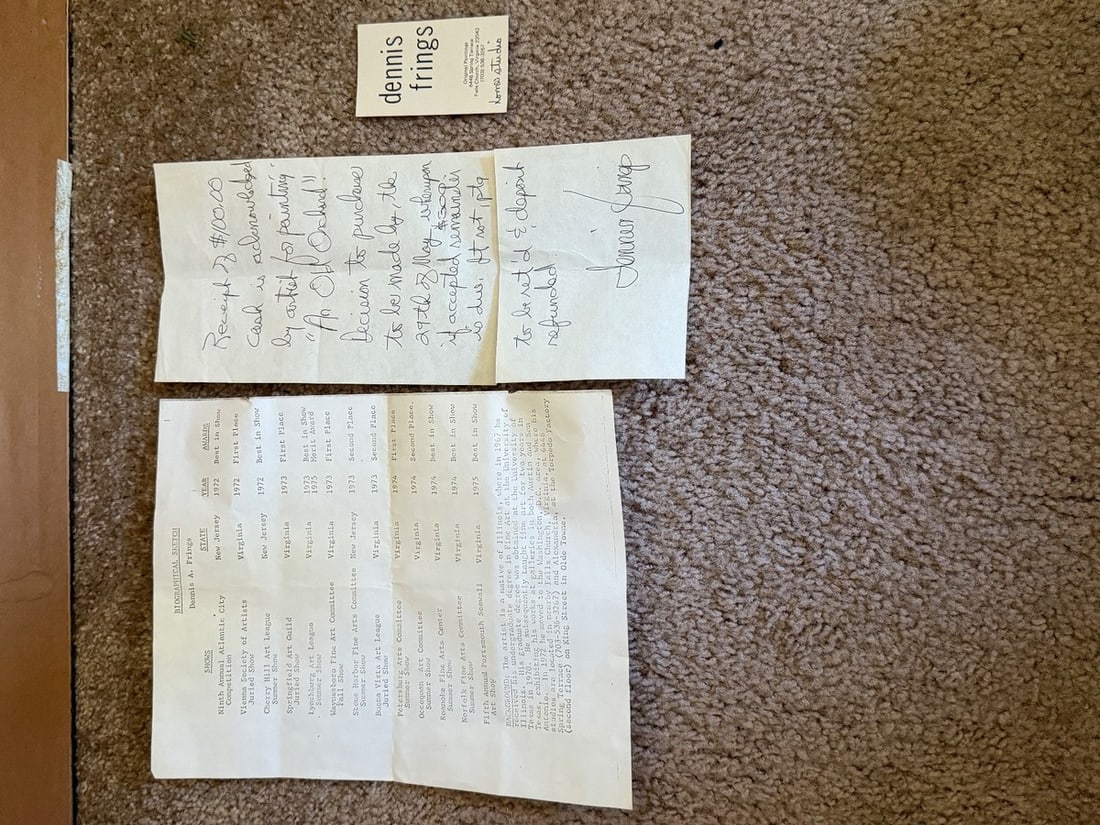 dennis
frings
Original Paintings
6446 Spring Terrace
Falls Church, Virginia 22042
(703) 536-3267
home studio
Receipt of $100.00
cash is acknowledged
by artist for painting:
"An Old Orchard"
Decision to purchase
to be made by the
29th of May whereupon
if accepted remainder
is due. If not, ptg
to be ret'd & deposit
refunded.
BIOGRAPHICAL SKETCH
Dennis A. Frings
SHOWS STATE YEAR AWARDS
Ninth Annual Atlantic City New Jersey 1972 Best in Show
Competition
Vienna Society of Artists Virginia 1972 First Place
Juried Show
Cherry Hill Art League New Jersey 1972 Best in Show
Summer Show
Springfield Art Guild Virginia 1973 First Place
Juried Show
Lynchburg Art League Virginia 1973 Best in Show
Summer Show 1975 Merit Award
Waynesboro Fine Art Committee Virginia 1973 First Place
Fall Show
Stone Harbor Fine Arts Committee New Jersey 1973 Second Place
Summer Show
Buena Vista Art League Virginia 1973 Second Place
Juried Show
Petersburg Arts Committee Virginia 1974 First Place
Summer Show
Occoquan Art Committee Virginia 1974 Second Place
Summer Show
Roanoke Fine Arts Center Virginia 1974 Best in Show
Summer Show
Norfolk Fine Arts Committee Virginia 1974 Best in Show
Summer Show
Fifth Annual Portsmouth Seawall Virginia 1975 Best in Show
Art Show
BACKGROUND: The artist is a native of Illinois, where in 1967 he
received his undergraduate degree in Fine Art at the University of
Illinois. His graduate degree was obtained at the University of
Texas in 1970. He subsequently taught fine art for two years in
Texas, exhibiting his works at galleries in both Austin and San
Antonio. In 1972 he moved to the Washington, D.C. area, where his
studios are located in nearby Falls Church, Virginia, at 6446
Spring Terrace (703-536-3267) and Alexandria, at the Torpedo Factory
(second floor) on King Street in Olde Towne.